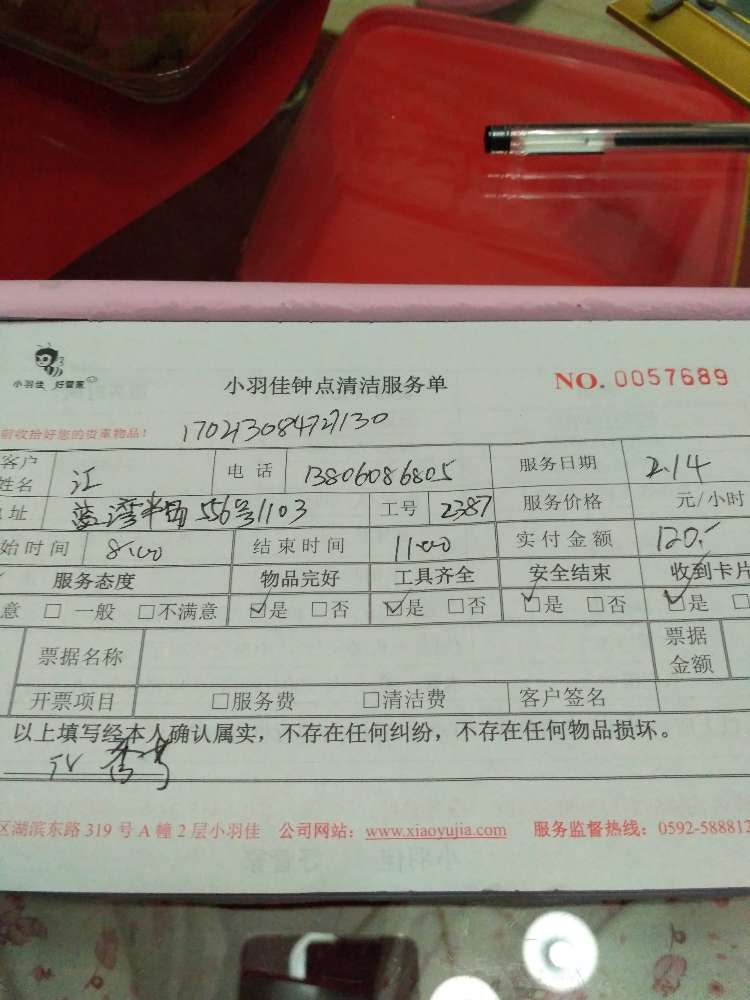 小羽佳 好管家
小羽佳钟点清洁服务单 NO. 0057689
前收拾好您的贵重物品! 170213084727130
客户姓名 江 电话 13806086805 服务日期 2.14
址 蓝湾半岛 56号1103 工号 2387 服务价格 元/小时
始时间 8:00 结束时间 11:00 实付金额 120.-
服务态度 物品完好 工具齐全 安全结束 收到卡片
意 □ 一般 □不满意 ☑是 □否 ☑是 □否 ☑是 □否 ☑是 □
票据名称 票据金额
开票项目 □服务费 □清洁费 客户签名
以上填写经本人确认属实，不存在任何纠纷，不存在任何物品损坏。
区湖滨东路 319 号 A 幢 2 层小羽佳 公司网站：www.xiaoyujia.com 服务监督热线：0592-588812